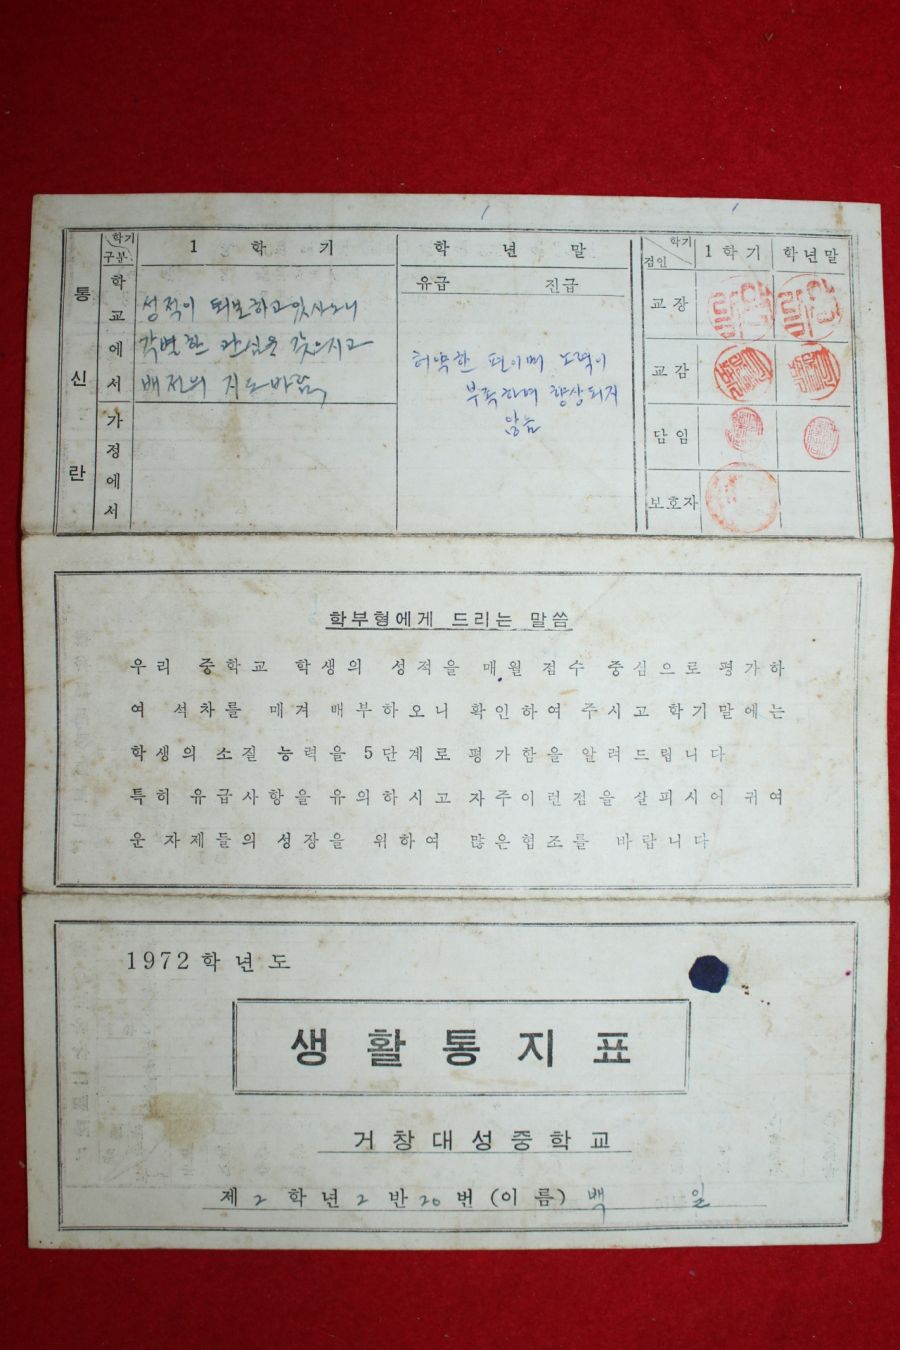 통신란
학기
구분
1 학기
학년말
학기
검인
1학기
학년말
학교에서
유급 진급
성적이 퇴보하고 있사오니
각별한 관심을 갖으시고
배전의 지도바람
허약한 편이며 노력이
부족하며 향상되지
않음
가정에서
교장
교감
담임
보호자
학부형에게 드리는 말씀
우리 중학교 학생의 성적을 매월 점수 중심으로 평가하
여 석차를 매겨 배부하오니 확인하여 주시고 학기말에는
학생의 소질 능력을 5단계로 평가함을 알려드립니다
특히 유급사항을 유의하시고 자주이런점을 살피시어 귀여
운 자제들의 성장을 위하여 많은협조를 바랍니다
1972학년도
생활통지표
거창대성중학교
제2학년2반20번(이름) 백 일